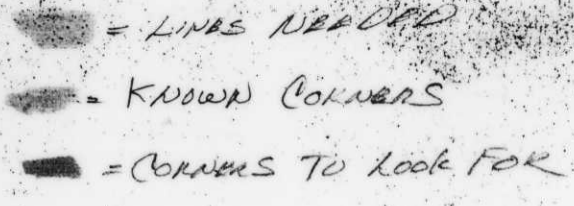 = LINES NEEDED
= KNOWN CORNERS
= CORNERS TO LOOK FOR